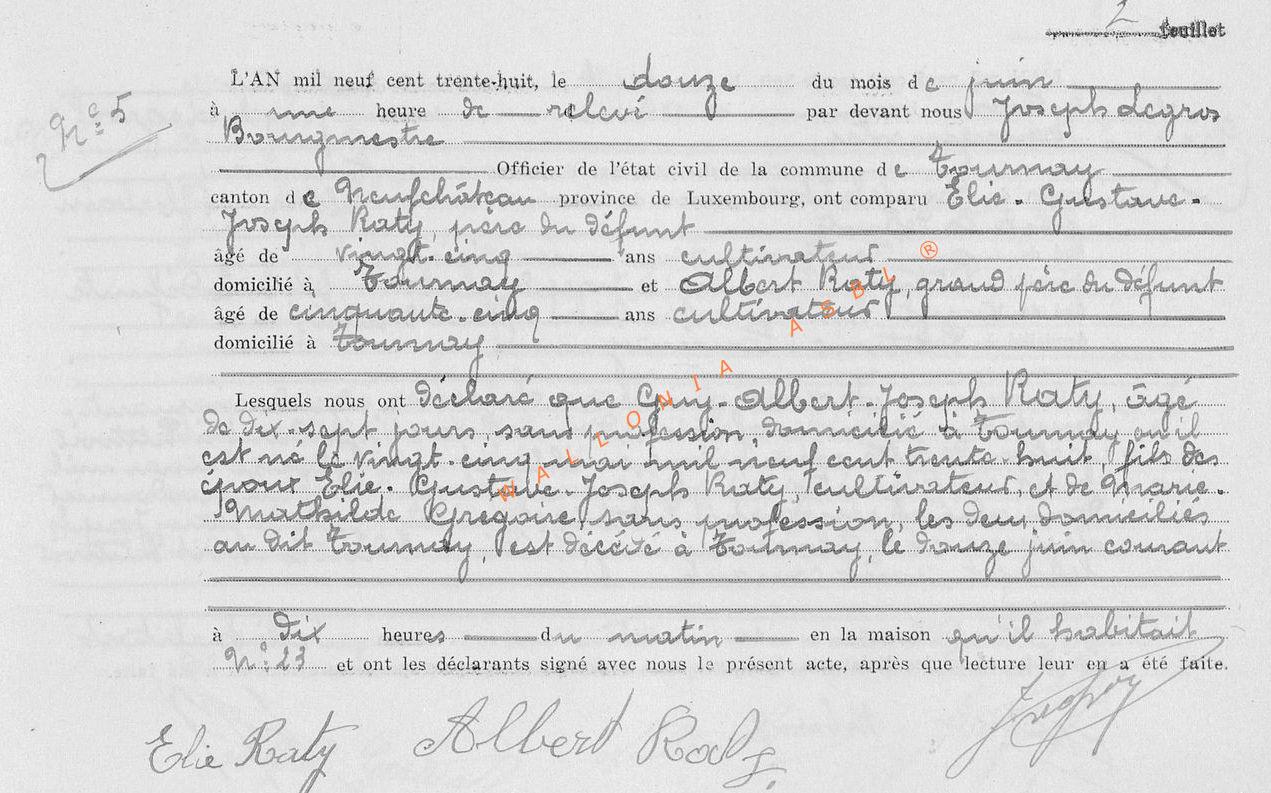 2
feuillet
N° 5
L'AN mil neuf cent trente-huit, le douze du mois de juin
à une heure de relevé par devant nous Joseph Legros
Bourgmestre
Officier de l'état civil de la commune de Tournay
canton de Neufchâteau province de Luxembourg, ont comparu Elie-Gustave-
Joseph Raty, père du défunt
âgé de vingt-cinq ans cultivateur
domicilié à Tournay et Albert Raty, grand père du défunt
âgé de cinquante-cinq ans cultivateur
domicilié à Tournay
Lesquels nous ont déclaré que Guy-Albert-Joseph Raty, âgé
de dix-sept jours, sans profession, domicilié à Tournay où il
est né le vingt-cinq mai mil neuf cent trente-huit, fils des
époux Elie-Gustave-Joseph Raty, cultivateur, et de Marie-
Mathilde Gregoire, sans profession, les deux domiciliés
au dit Tournay, est décédé à Tournay, le douze juin courant
à dix heures du matin en la maison qu'il habitait
N° 23 et ont les déclarants signé avec nous le présent acte, après que lecture leur en a été faite.
Elie Raty Albert Raty
WALLONIA ASBL ®